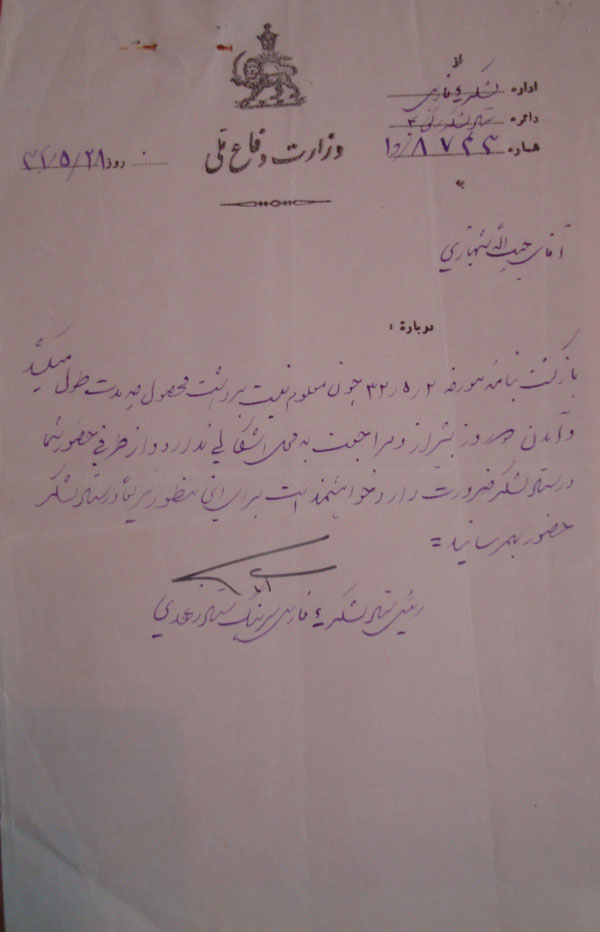 از
اداره لشکر ۶ فارس
دائره ستاد لشکر رکن ۲
شماره ۸۷۴۳/ وا
وزارت دفاع ملی
روز ۳۲/۵/۲۸
آقای حبیب اله شهبازی
درباره :
بازگشت بنامه مورخه ۳۲/۵/۲ چون معلوم نیست برداشت محصول چه مدت طول میکشد
و آمدن روز بشیراز و مراجعت به محل اشکالی ندارد و از طرفی حضور شما
در ستاد لشکر ضرورت دارد خواهشمند است برای این منظور در ستاد لشکر
حضور بهمرسانید =
رئیس ستاد لشکر ۶ فارس سرهنگ ستاد